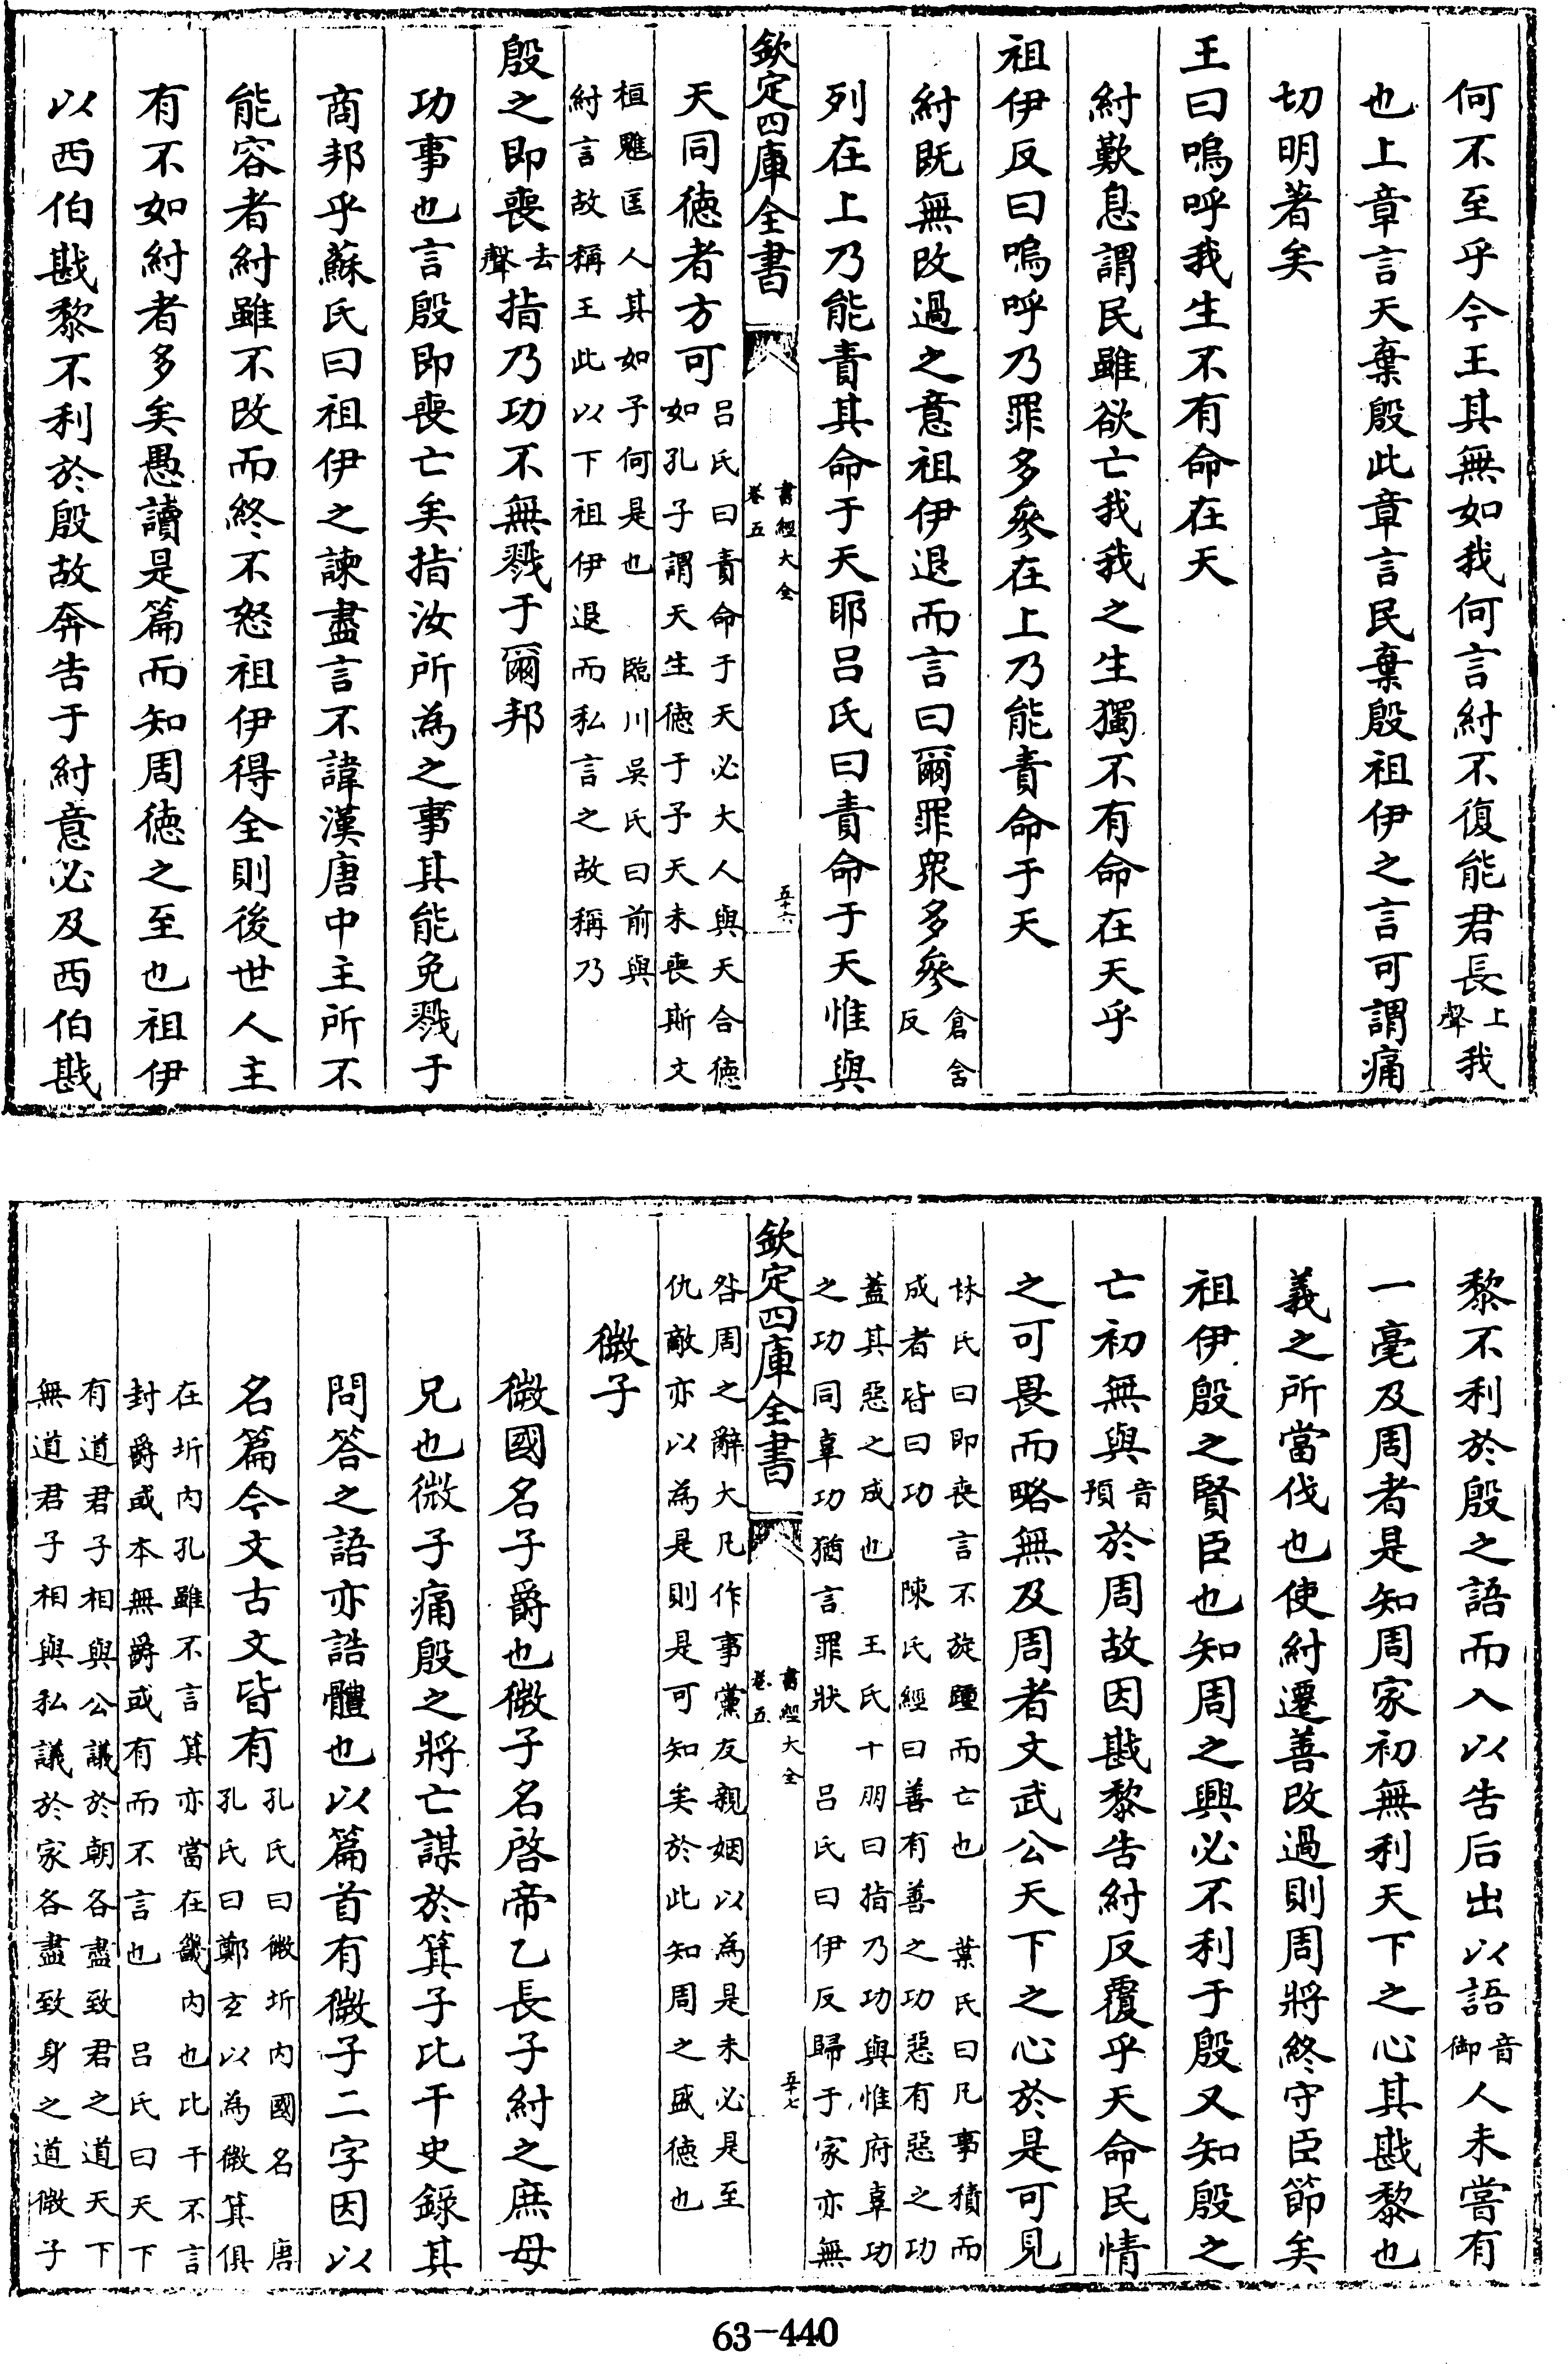 何不至乎今王其無如我何言紂不復能君長上聲我
也上章言天棄殷此章言民棄殷祖伊之言可謂痛
切明著矣
王曰嗚呼我生不有命在天
紂歎息謂民雖欲亡我我之生獨不有命在天乎
祖伊反曰嗚呼乃罪多參在上乃能責命于天
紂既無改過之意祖伊退而言曰爾罪衆多參倉含反
列在上乃能責其命于天耶吕氏曰責命于天惟與
欽定四庫全書
書經大全
卷五
五十六
天同徳者方可
吕氏曰責命于天必大人與天合徳
如孔子謂天生徳于予天未喪斯文
桓魋匡人其如予何是也 臨川吳氏曰前與
紂言故稱王此以下祖伊退而私言之故稱乃
殷之即喪去聲指乃功不無戮于爾邦
功事也言殷即喪亡矣指汝所為之事其能免戮于
商邦乎蘇氏曰祖伊之諫盡言不諱漢唐中主所不
能容者紂雖不改而終不怒祖伊得全則後世人主
有不如紂者多矣愚讀是篇而知周徳之至也祖伊
以西伯戡黎不利於殷故奔告于紂意必及西伯戡
黎不利於殷之語而入以告后出以語音御人未嘗有
一毫及周者是知周家初無利天下之心其戡黎也
義之所當伐也使紂遷善改過則周將終守臣節矣
祖伊殷之賢臣也知周之興必不利于殷又知殷之
亡初無與音預於周故因戡黎告紂反覆乎天命民情
之可畏而略無及周者文武公天下之心於是可見
林氏曰即喪言不旋踵而亡也 葉氏曰凡事積而
成者皆曰功 陳氏經曰善有善之功惡有惡之功
蓋其惡之成也 王氏十朋曰指乃功與惟府辜功
之功同辜功猶言罪狀 吕氏曰伊反歸于家亦無
欽定四庫全書
書經大全
卷五
五十七
咎周之辭大凡作事黨友親姻以為是未必是至
仇敵亦以為是則是可知矣於此知周之盛徳也
微子
微國名子爵也微子名啓帝乙長子紂之庶母
兄也微子痛殷之將亡謀於箕子比干史錄其
問答之語亦誥體也以篇首有微子二字因以
名篇今文古文皆有
孔氏曰微圻内國名 唐
孔氏曰鄭玄以為微箕俱
在圻内孔雖不言箕亦當在畿内也比干不言
封爵或本無爵或有而不言也 吕氏曰天下
有道君子相與公議於朝各盡致君之道天下
無道君子相與私議於家各盡致身之道微子
63-440